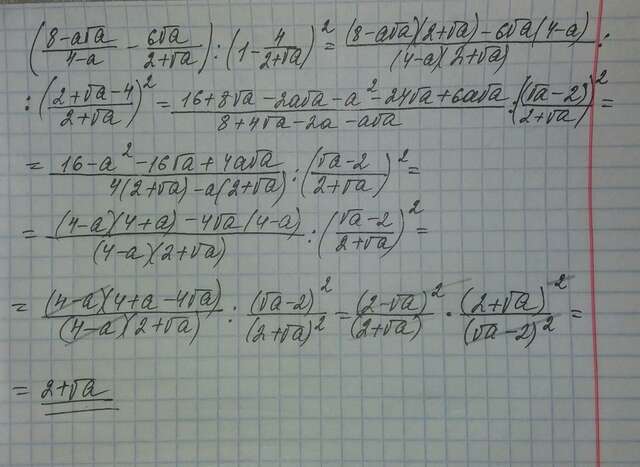 ((8-a√a)/(4-a) - (6√a)/(2+√a)) : (1 - 4/(2+√a))² = ((8-a√a)(2+√a) - 6√a(4-a))/((4-a)(2+√a)) :
: ((2+√a-4)/(2+√a))² = (16+8√a-2a√a-a²-24√a+6a√a)/(8+4√a-2a-a√a) : ((√a-2)/(2+√a))² =
= (16-a²-16√a+4a√a)/(4(2+√a)-a(2+√a)) : ((√a-2)/(2+√a))² =
= ((4-a)(4+a)-4√a(4-a))/((4-a)(2+√a)) : ((√a-2)/(2+√a))² =
= ((4-a)(4+a-4√a))/((4-a)(2+√a)) : (√a-2)²/(2+√a)² = (2-√a)²/(2+√a) · (2+√a)²/(√a-2)² =
= 2+√a